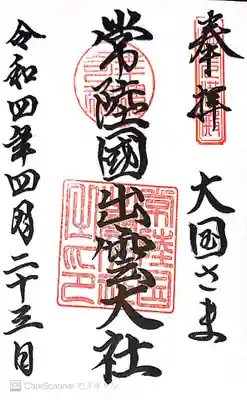 奉拝
大国さま
常陸國出雲大社
令和四年四月二十三日
CamScanner でスキャン